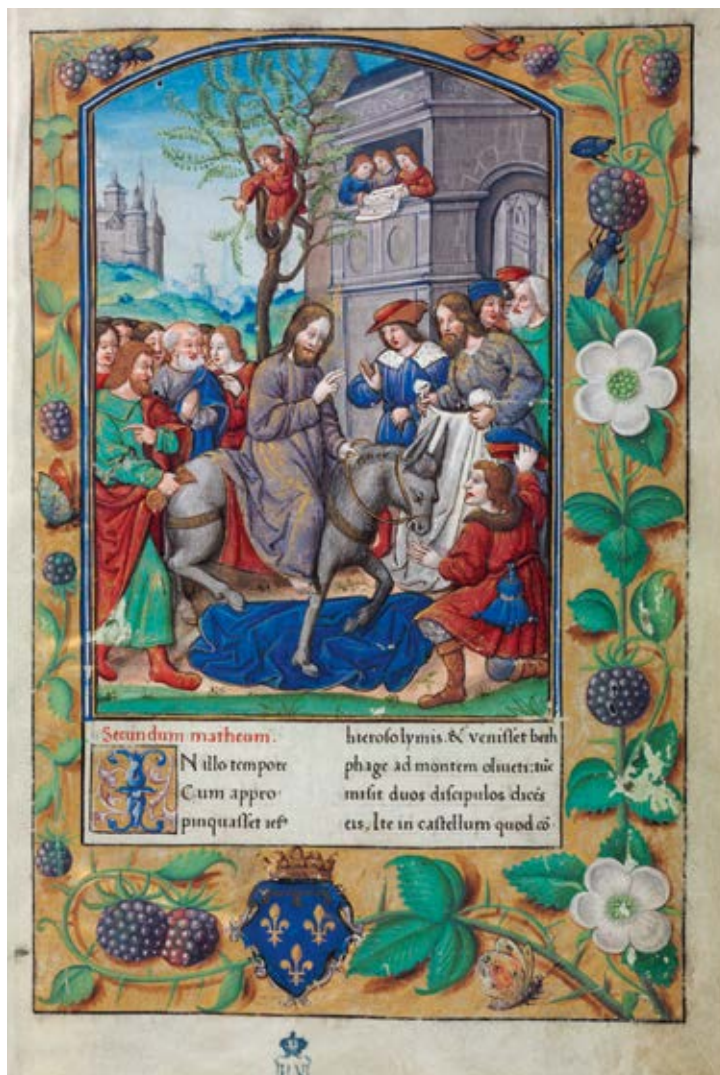 Secundum matheum.
IN illo tempore
Cum appro-
pinquasset ieſꝰ
hieroſolymis. & veniſſet beth
phage ad montem oliueti: tūc
miſit duos diſcipulos dicēs
eis, Ite in caſtellum quod cō-